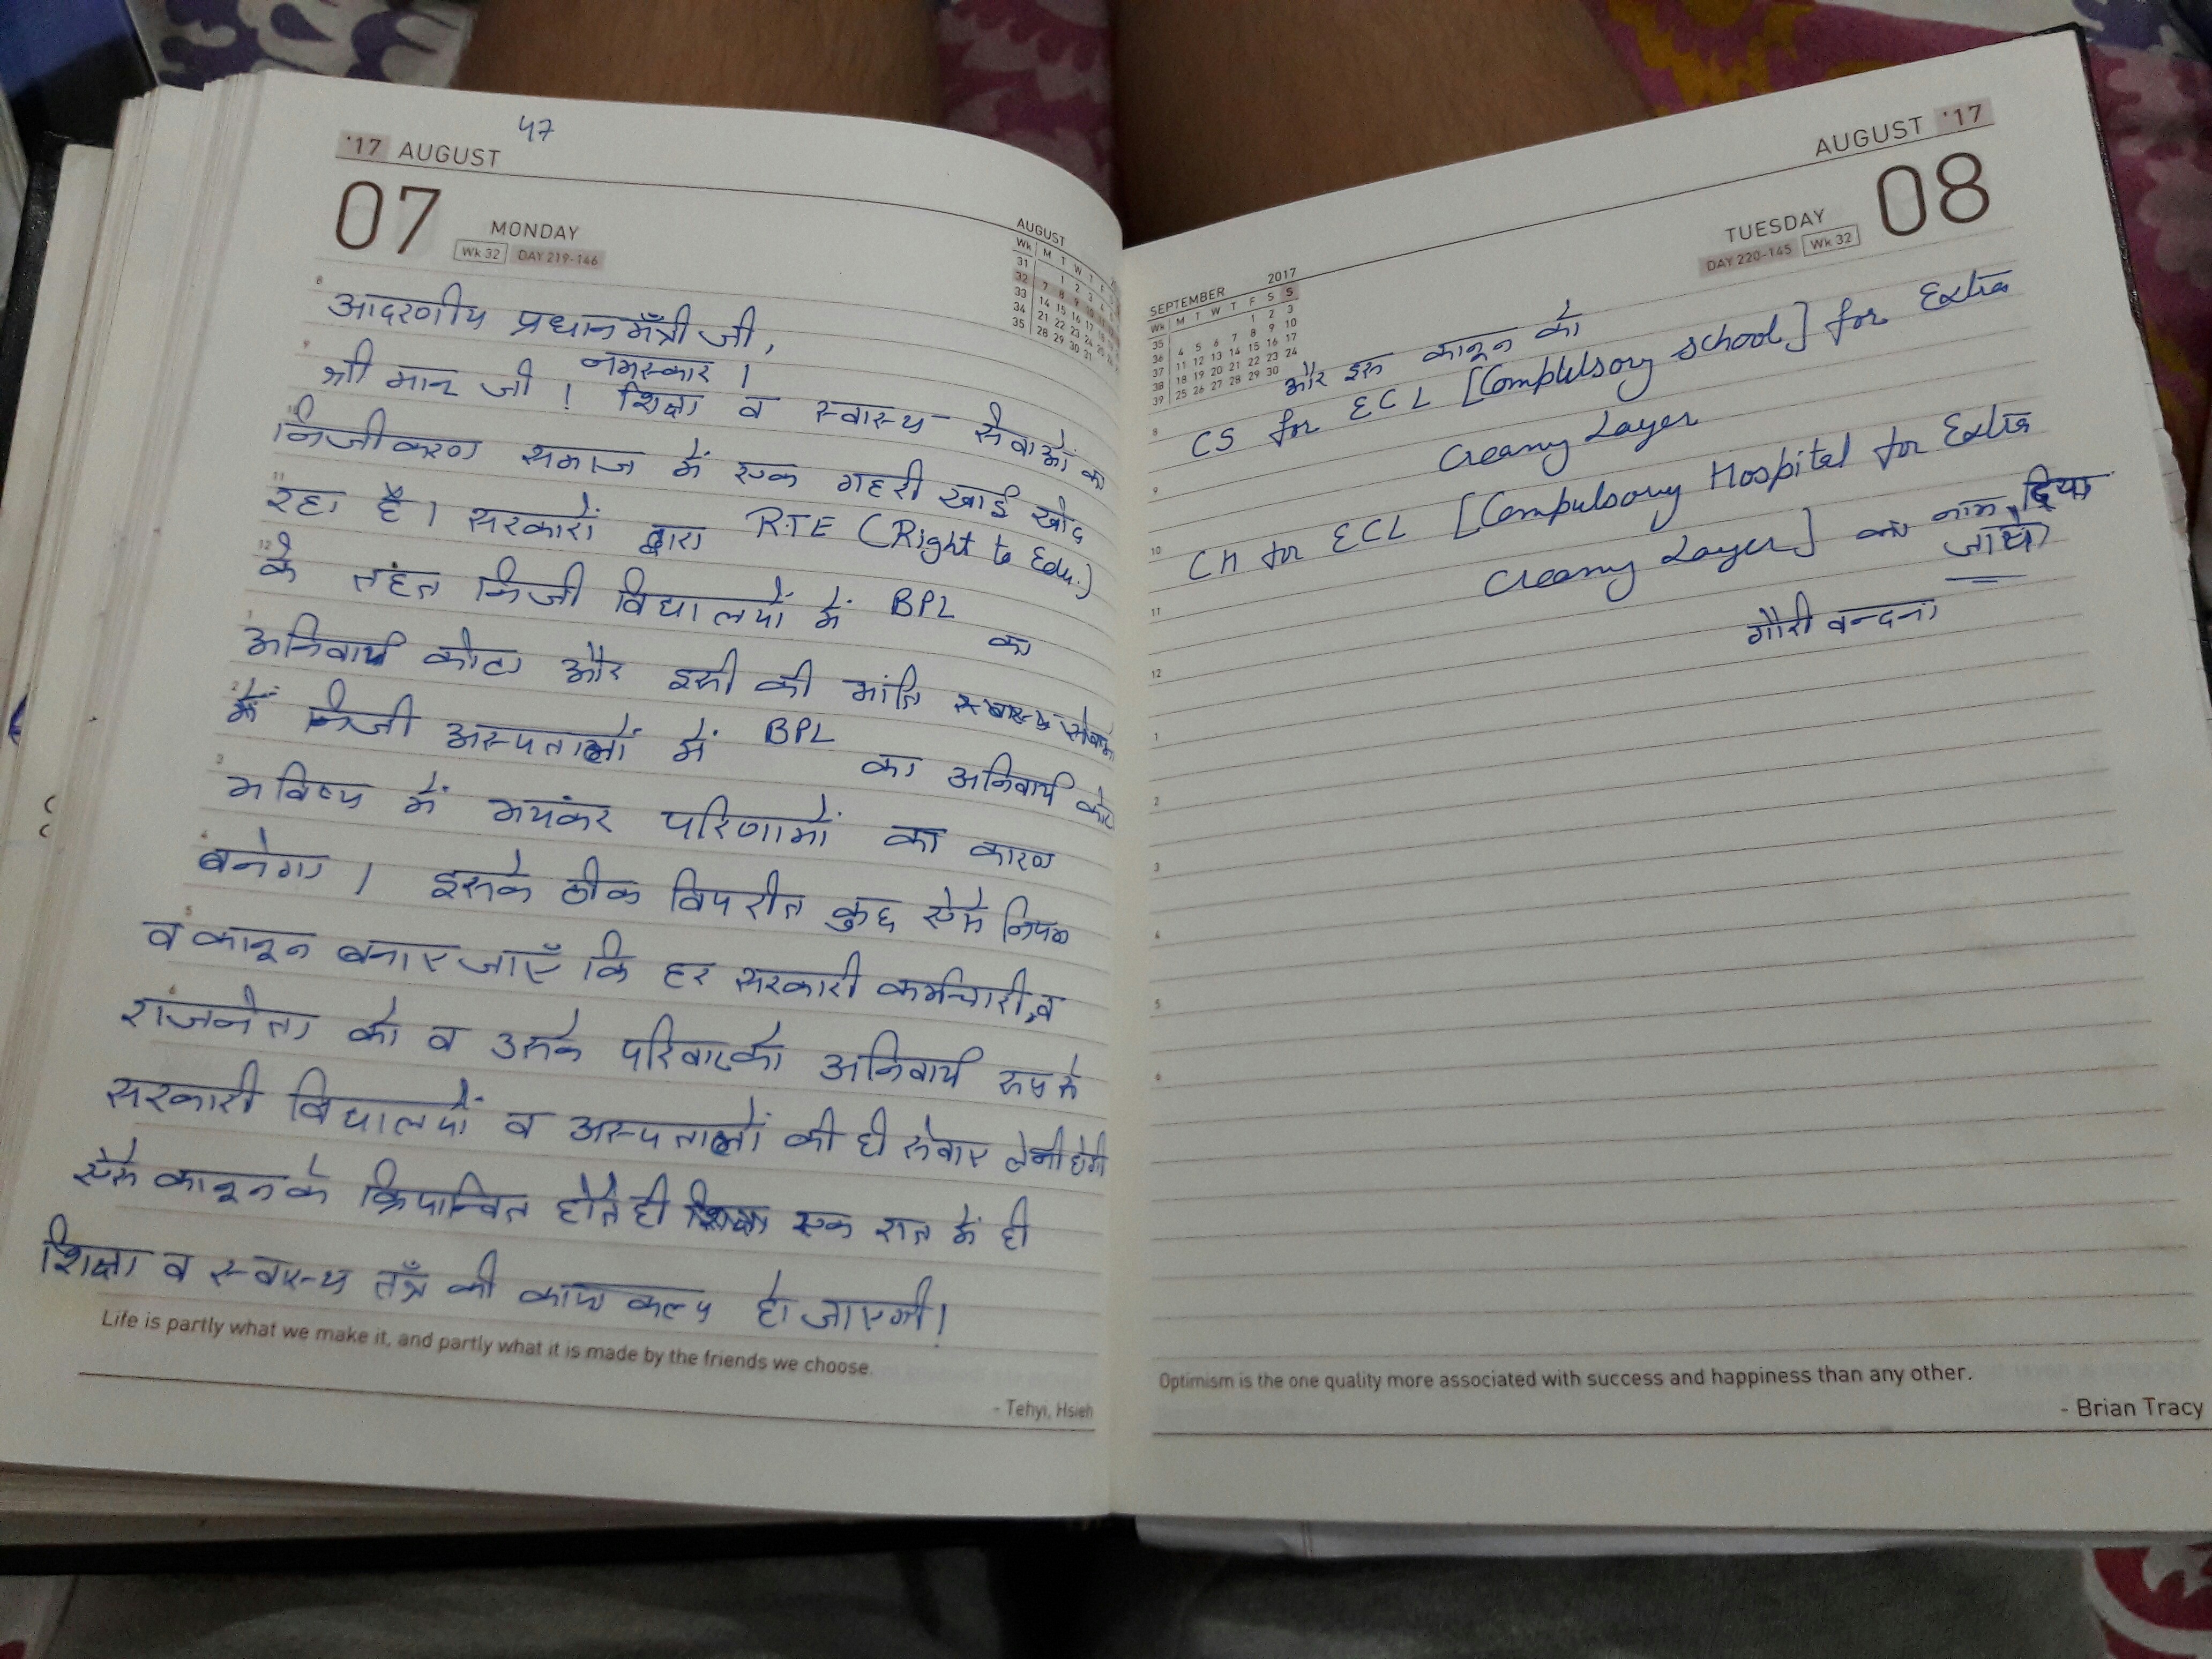 47
'17 AUGUST
07
MONDAY
Wk 32 DAY 219-146
AUGUST
Wk M T W T F
31 1 2 3 4
32 7 8 9 10 11
33 14 15 16 17 18
34 21 22 23 24 25
35 28 29 30 31
आदरणीय प्रधानमँत्री जी,
नमस्कार ।
श्री मान जी ! शिक्षा व स्वास्थ्य सेवाओं का
निजीकरण समाज में एक गहरी खाई खोद
रहा है । सरकारों द्वारा RTE (Right to Edu.)
के तहत निजी विद्यालयों में BPL का
अनिवार्य कोटा और इसी की भांति स्वास्थ्य सेवाओं
में निजी अस्पतालों में BPL का अनिवार्य कोटा
भविष्य में भयंकर परिणामों का कारण
बनेगा । इसके ठीक विपरीत कुछ ऐसे नियम
व कानून बनाए जाएँ कि हर सरकारी कर्मचारी, व
राजनेता को व उसके परिवार को अनिवार्य रुप से
सरकारी विद्यालयों व अस्पतालों की ही सेवाए लेनी होगी
ऐसे कानून के क्रियान्वित होते ही एक रात में ही
शिक्षा व स्वास्थ्य तँत्र की काया कल्प हो जाएगी !
Life is partly what we make it, and partly what it is made by the friends we choose.
- Tehyi, Hsieh
AUGUST '17
08
TUESDAY
DAY 220-145 Wk 32
SEPTEMBER 2017
Wk M T W T F S S
35 1 2 3
36 4 5 6 7 8 9 10
37 11 12 13 14 15 16 17
38 18 19 20 21 22 23 24
39 25 26 27 28 29 30
और इस कानून को
CS for ECL [Complulsory school] for Extra
Creamy Layer
CH for ECL [Compulsory Hospital for Extra
Creamy Layer] का नाम दिया
जाये
गौरी वन्दना
Optimism is the one quality more associated with success and happiness than any other.
- Brian Tracy